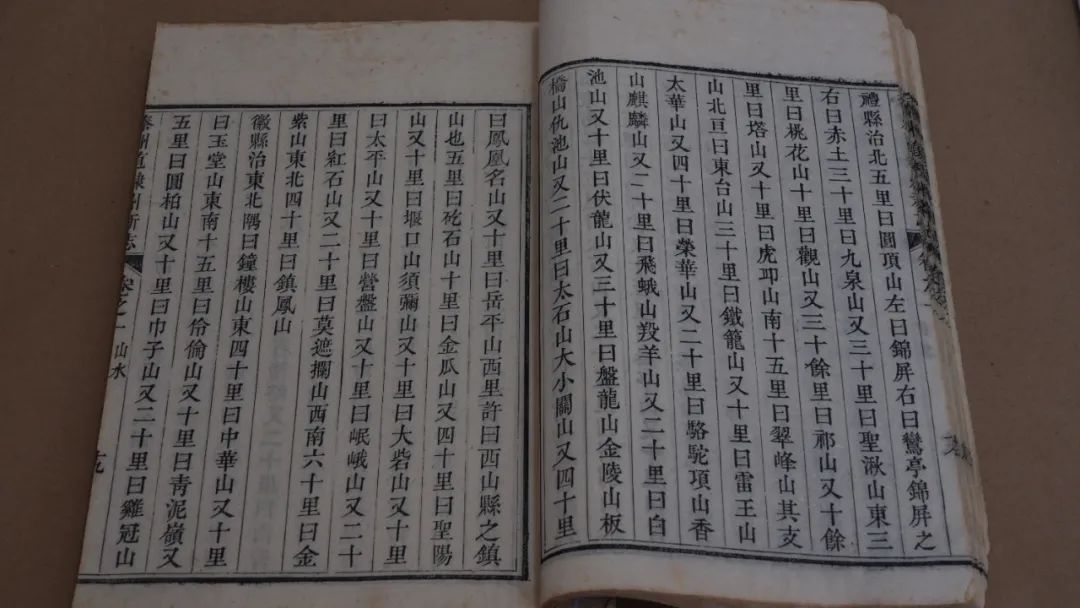 禮縣治北五里曰圓頂山左曰錦屏右曰鸞亭錦屏之
右曰赤土三十里曰九泉山又三十里曰聖湫山東三
里曰桃花山十里曰觀山又三十餘里曰祁山又十餘
里曰塔山又十里曰虎卭山南十五里曰翠峰山其支
山北亘曰東台山三十里曰鐵籠山又十里曰雷王山
太華山又四十里曰榮華山又二十里曰駱駝項山香
山麒麟山又二十里曰飛蛾山羖羊山又二十里曰白
池山又十里曰伏龍山又三十里曰盤龍山金陵山板
橋山仇池山又二十里曰太石山大小關山又四十里
曰鳳凰名山又十里曰岳平山西里許曰西山縣之鎮
山也五里曰矻石山十里曰金瓜山又四十里曰聖陽
山又十里曰堰口山須彌山又十里曰大砦山又十里
曰太平山又十里曰營盤山又十里曰岷峨山又二十
里曰紅石山又二十里曰莫遮攔山西南六十里曰金
紫山東北四十里曰鎮鳳山
徽縣治東北隅曰鐘樓山東四十里曰中華山又十里
曰玉堂山東南十五里曰伶倫山又十里曰青泥嶺又
五里曰圓柏山又十里曰巾子山又二十里曰雞冠山
秦州直隸州新志 卷之一 山水 九